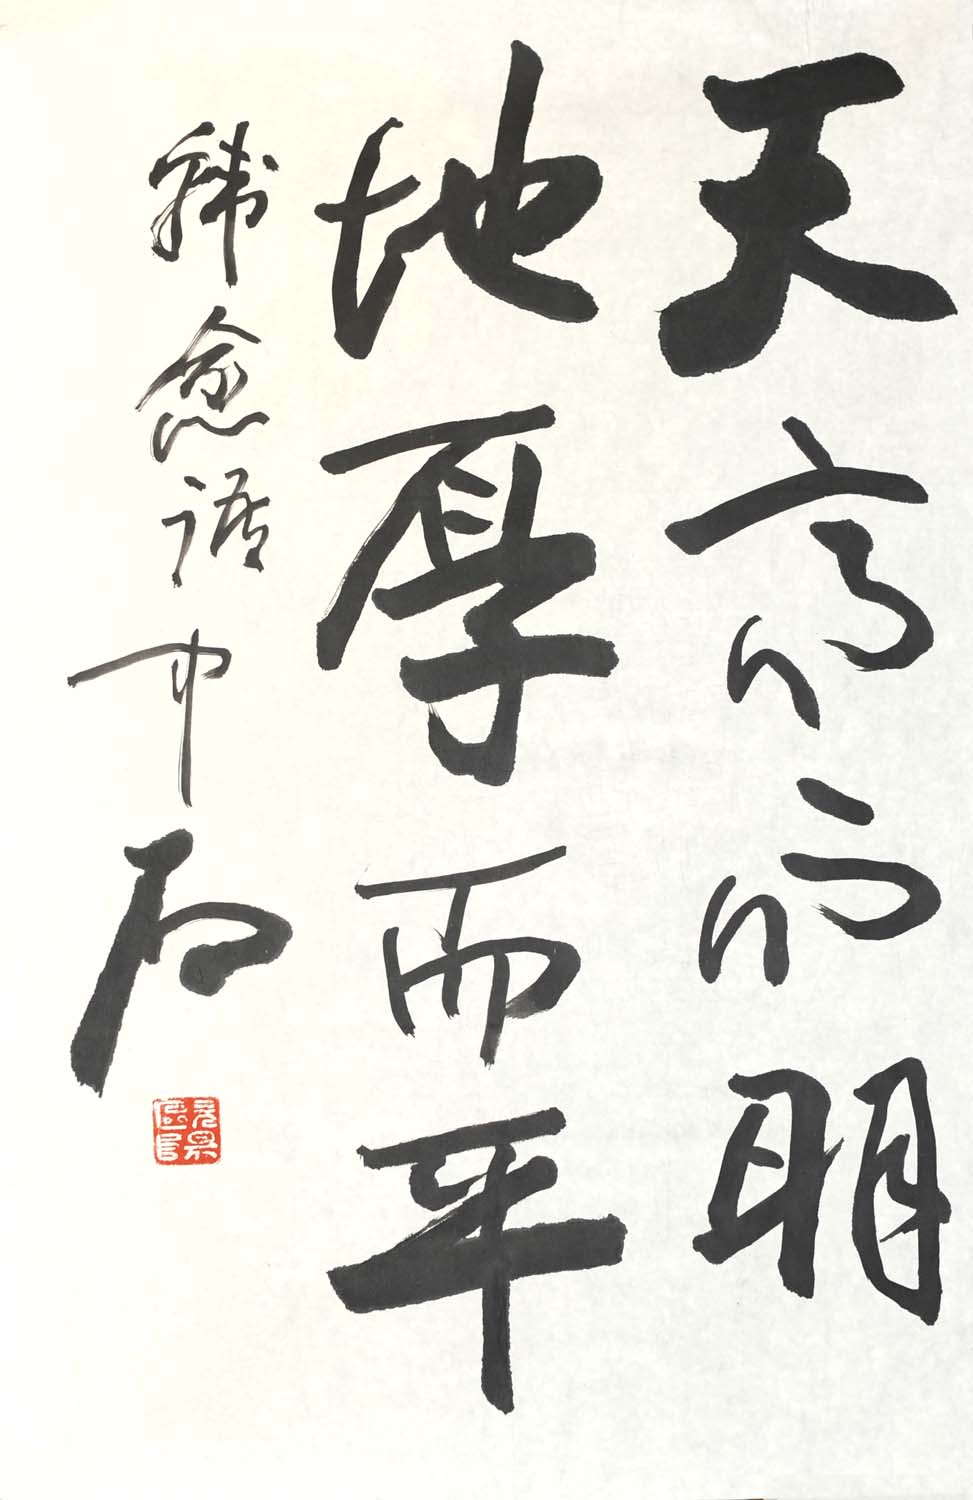 天高而明
地厚而平
韓愈語中石